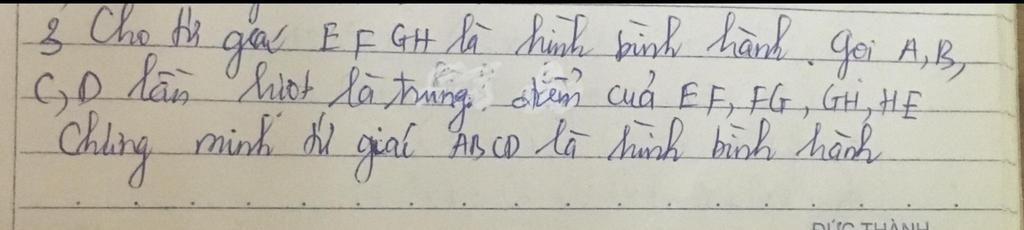 3 Cho tứ giác EFGH là hình bình hành. Gọi A, B,
C, D lần lượt là trung điểm của EF, FG, GH, HE
Chứng minh tứ giác ABCD là hình bình hành
ĐỨC THÀNH